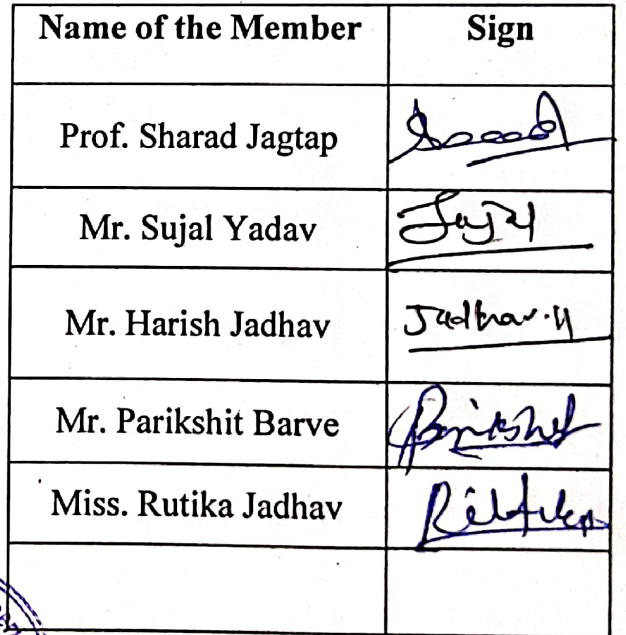 Name of the Member Sign
Prof. Sharad Jagtap
Mr. Sujal Yadav
Mr. Harish Jadhav Jadhav.H
Mr. Parikshit Barve Parikshit
Miss. Rutika Jadhav Rutika